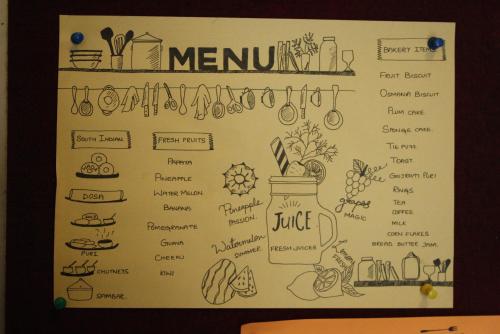 MENU
SOUTH INDIAN
DOSA
PURI
CHUTNEYS
SAMBAR
FRESH FRUITS
PAPAYA
PINEAPPLE
WATER MELON
BANANA
POMEGRANATE
GUAVA
CHEEKU
KIWI
Pineapple
PASSION.
Watermelon
SUMMER.
JUICE
FRESH JUICES
grapes
MAGIC
BAKERY ITEMS
FRUIT BISCUIT
OSMANIA BISCUIT
PLUM CAKE.
SPONGE CAKE.
TIE PUFF.
TOAST.
GUJRATI PURI
RINGS
TEA
COFFEE
MILK
CORN FLAKES
BREAD BUTTER JAM.